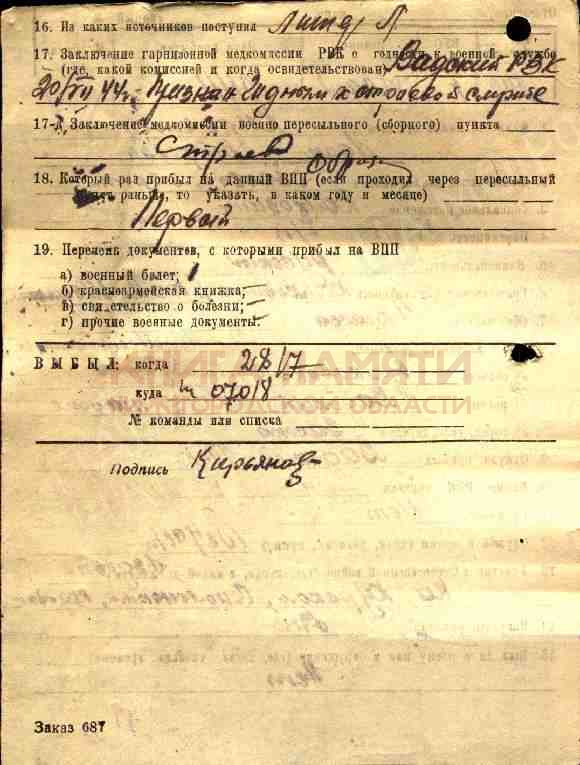 16. Из каких источников поступил
17. Заключение гарнизонной медкомиссии РВК о годности к военной службе
(где, какой комиссией и когда освидетельствован) Вадский РВК
20/VII 44г. Признан годным к строевой службе
17-а Заключение медкомиссии военно пересыльного (сборного) пункта
18. Который раз прибыл на данный ВПП (если проходил через пересыльный
пункт раньше, то указать, в каком году и месяце)
Первый
19. Перечень документов, с которыми прибыл на ВПП
а) военный билет;
б) красноармейская книжка;
в) свидетельство о болезни;
г) прочие военные документы.
ВЫБЫЛ: когда 28/7
КНИГА ПАМЯТИ
куда 07018
НИЖЕГОРОДСКОЙ ОБЛАСТИ
№ команды или списка
Подпись Кирьянов
Заказ 687